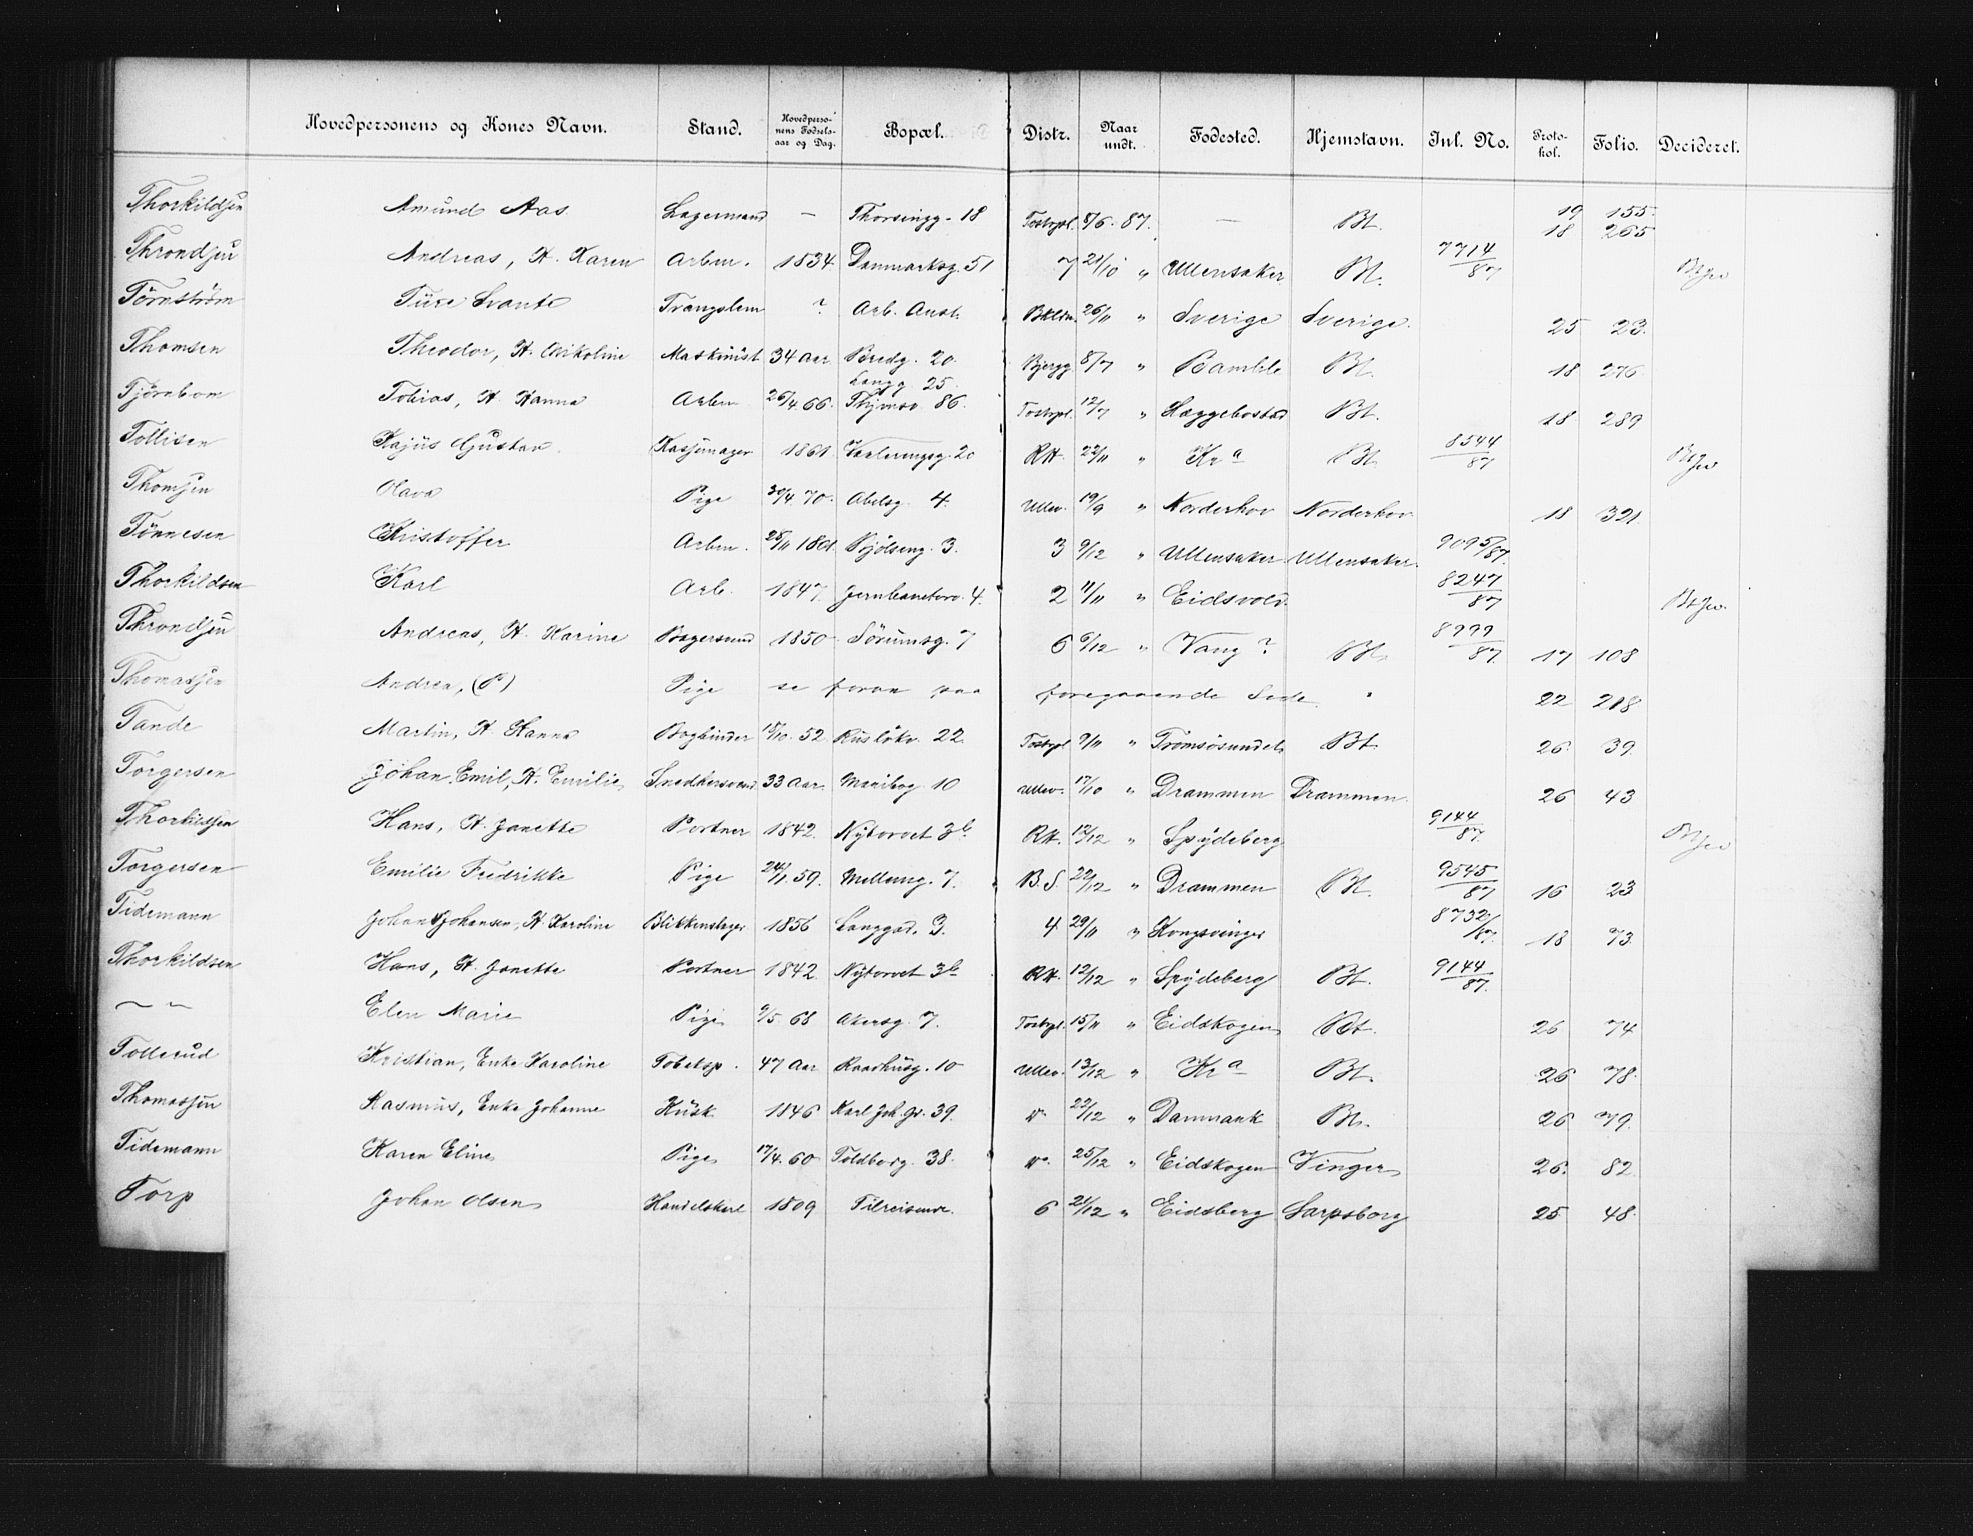 Hovedpersonens og Kones Navn. Stand. Hovedpersonens Fødselsaar og Dag. Bopæl. Distr. Naar undt. Fødested. Hjemstavn. Inl. No. Protokol. Folio. Decideret.
Thorkildsen Amund Aas Lagermand — Thorsingg. 18 8/6 87. — Bt. 19 155.
18 265
Throndsen Andreas, H. Karen Arbm. 1834 Danmarksg. 51 7 21/10 " Ullensaker Bt. 7714/87
Törnström Ture Svante Tvangslem ? Arb. Anst. 26/11 " Sverige Sverige. 25 23.
Thomsen Theodor, H. Nikoline Maskinist 34 Aar Bredg. 20. Bjergg 8/7 " Bamble Bt. 18 276
Langg 25.
Tjörnbom Tobias, H. Hanna Arbm 26/4 66. 86. 12/7 " Hæggebostad Bt. 18 289
Tollisen Kajus Gustav Kassemager 1861 Vaaleringsg. 20 RH 22/11 " Kra Bt. 8544/87
Thomsen Olava Pige 30/4 70. Abelsg. 4. Ullev. 19/9 " Norderhov Norderhov 18 321
Tönnesen Kristoffer Arbm. Bjölseng. 3. 3 9/12 " Ullensaker Ullensaker 9095/87.
Thorkildsen Karl Arb. 1847. Jernbanetorv. 4. 2 11/11 " Eidsvold. 8247/87
Throndsen Andreas, H. Karine Bagersvend 1850 Sörumsg. 7 6 6/12 " Vang? Bt. 8999/87. 17 108
Thomassen Andrea, (P) Pige se foran paa foregaaende Side. " 22 218
Tande Martin, H. Hanna Bogbinder 15/10. 52. Rusløkv. 22 9/11 " Tromsösundet Bt. 26 39.
Torgersen Johan Emil, H. Emilie Snedkersvend 33 Aar. Maribog. 10 Ullev. 17/10 " Drammen Drammen 26 43
Thorkildsen Hans, H. Janette Portner 1842. Nytorvet 3b RH. 12/12 " Spydeberg 9144/87.
Torgersen Emilie Fredrikke Pige 24/1 59. Mellemg. 7. B.S. 22/12 " Drammen Bt. 9545/87 16 23
Tidemann Johan Johansen, H. Karoline Blikkenslager 1856 Langgad. 3. 4 29/11 " Kongsvinger 8732/87. 18 73.
Thorkildsen Hans, H. Janette Portner 1842 Nytorvet 3b RH. 12/12 " Spydeberg Bt. 9144/87.
— " — Elen Marie Pige 9/5. 68 Akersg. 7. 15/11 " Eidskogen Bt. 26 74
Tollerud Kristian, Enke Karoline Tobaksp. 47 Aar Raadhusg. 10 Ullev. 13/12 " Kra Bt. 26 78.
Thomassen Rasmus, Enke Johanne Kusk 1846 Karl Joh. g. 39. 22/12 " Danmark Bt. 26 79.
Tidemann Karen Eline Pige 17/4. 60 Toldbodg. 38. 25/12 " Eidskogen Vinger 26. 82.
Torp Johan Olsen Handelskarl 1809 Tilreisende. 6 21/12 " Eidsberg Sarpsborg 25 48.